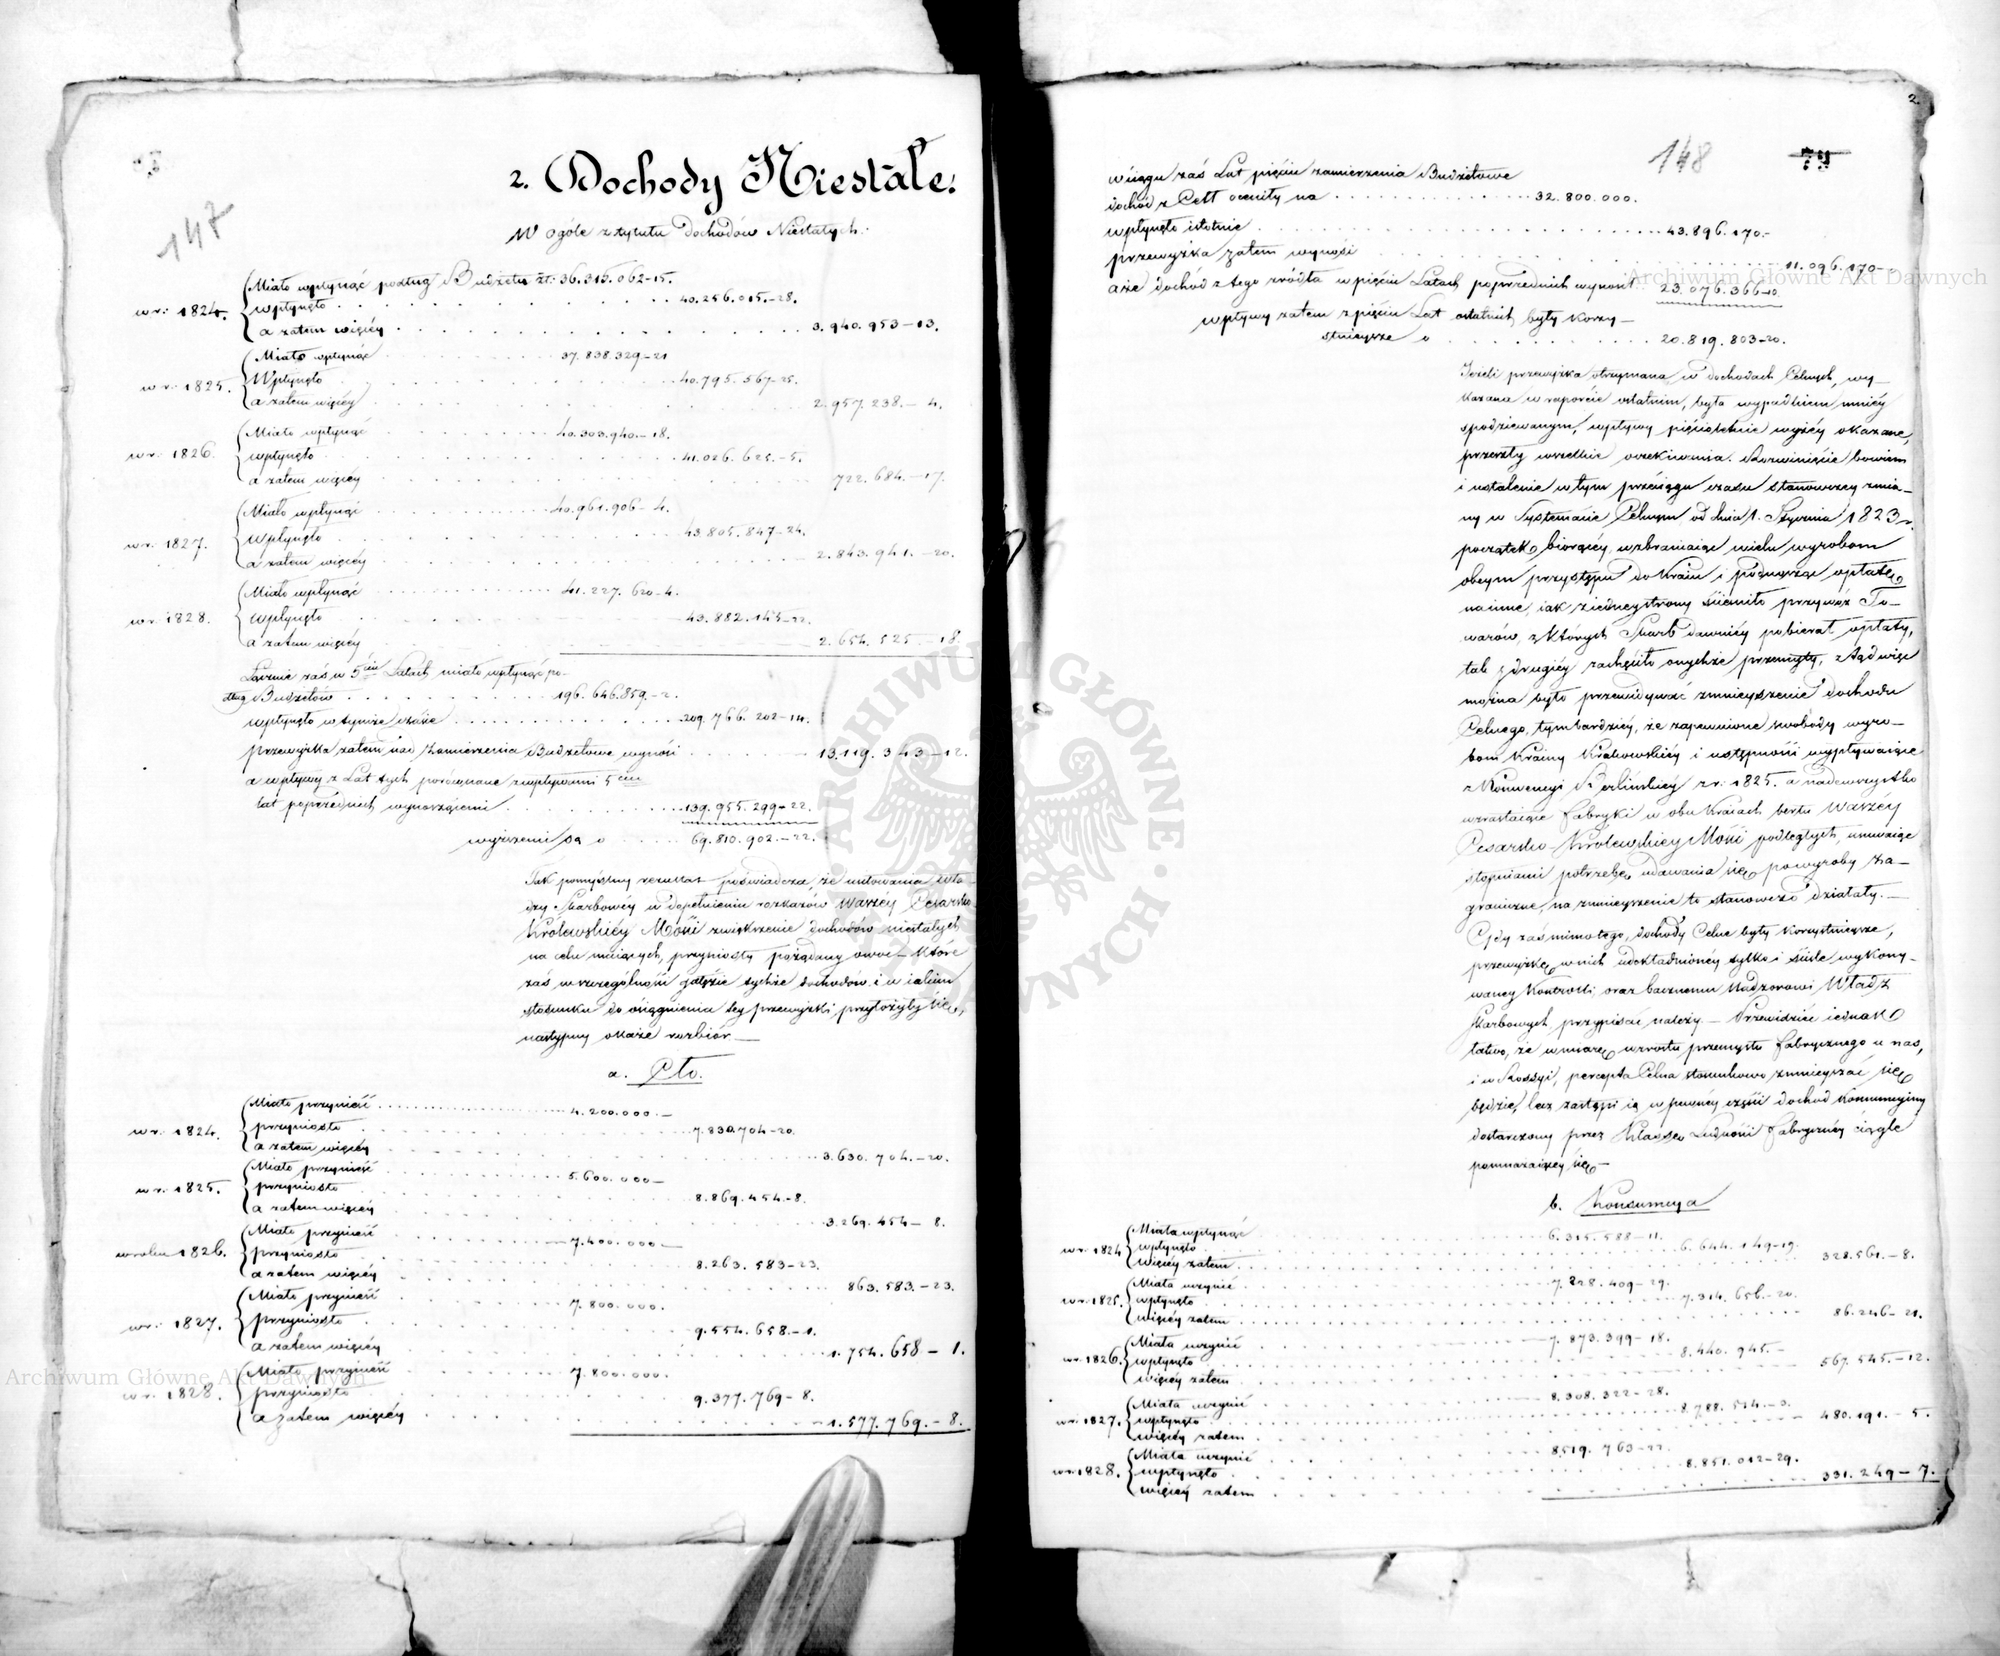 147
2. Dochody Niestałe.
W ogóle z tytułu dochodów Niestałych.
w r: 1824.
Miało wpłynąć podług Budżetu zł: 36.315.062-15.
wpłynęło 40.256.015.-28.
a zatem więcéy 3.940.953-13.
w r: 1825.
Miało wpłynąć 37.838.329-21
Wpłynęło 40.795.567-25.
a zatem więcéy 2.957.238.-4.
w r: 1826.
Miało wpłynąć 40.303.940.-18.
wpłynęło 41.026.625.-5.
a zatem więcéy 722.684.-17.
w r: 1827.
Miało wpłynąć 40.961.906-4.
wpłynęło 43.805.847-24.
a zatem więcéy 2.843.941.-20.
w r: 1828.
Miało wpłynąć 41.227.620-4.
wpłynęło 43.882.145-22.
a zatem więcéy 2.654.525.-18.
Łącznie zaś w 5ciu Latach miało wpłynąć po-
dług Budżetów 196.646.859.-2.
wpłynęło w tymże czasie 209.766.202-14.
przewyżka zatem nad zamierzenia Budżetowe wynosi 13.119.343-12.
a wpływy z Lat tych porównane z wpływami 5ciu
lat poprzednich wynoszącemi 139.955.299-22.
wyższemi są o 69.810.902.-22.
Tak pomyślny rezultat poświadcza, że usiłowania wła-
dzy Skarbowey w dopełnieniu rozkazów Waszéy Cesarsko
Królewskiéy Mości zwiększenie dochodów niestałych
na celu maiących, przyniosły pożądany owoc - które
zaś w szczególności gałęzie tychże dochodów i w iakim
stosunku do osiągnienia tey przewyżki przyłożyły się,
następny okaże rozbiór —
a. Cło.
w r: 1824.
Miało przynieść 4.200.000.-
przyniosło 7.830.704-20.
a zatem więcéy 3.630.704.-20.
w r: 1825.
Miało przynieść 5.600.000-
przyniosło 8.869.454-8.
a zatem więcéy 3.269.454-8.
w roku 1826.
Miało przynieść 7.400.000-
przyniosło 8.263.583-23.
a zatem więcéy 863.583.-23.
w r: 1827.
Miało przynieść 7.800.000.
przyniosło 9.554.658-1.
a zatem więcéy 1.754.658-1.
w r: 1828.
Miało przynieść 7.800.000.
przyniosło 9.377.769-8.
a zatem więcéy 1.577.769.-8.
2
148
w ciągu zaś Lat pięciu zamierzenia Budżetowe
dochód z Ceł oceniły na 32.800.000.
wpłynęło istotnie 43.896.170-
przewyżka zatem wynosi 11.096.170-
a że dochód z tego źródła w pięciu Latach poprzednich wynosi 23.076.366-10.
wpływy zatem z pięciu Lat ostatnich były korzy-
stnieysze o 20.819.803-20.
Jeżeli przewyżka otrzymana w dochodach Celnych, wy-
kazana w raporcie ostatnim, była wypadkiem mniéy
spodziewanym, wpływy pięcioletnie wyżéy okazane,
przeszły wszelkie oczekiwania. Rozwinięcie bowiem
i ustalenie w tym przeciągu czasu stanowczey zmia-
ny w Systemacie Celnym od dnia 1. Stycznia 1823 r.
początek biorącéy, wzbraniaiąc wielu wyrobom
obcym przystępu do kraiu i podnosząc opłatę
na inne, iak z iednéy strony ścieśniło przywóz To-
warów, z których Skarb dawniéy pobierał opłaty,
tak z drugiéy zachęciło onychże przemyty, ztąd więc
można było przewidywać zmnieyszenie dochodu
Celnego, tymbardziéy, że zapewnione swobody wyro-
bom Krainy Krakowskiéy i ustępności wypływaiące
z Konwencyi Berlińskiéy z r: 1825. a nadewszystko
wzrastaiące fabryki w obu Kraiach berłu Waszéy
Cesarsko-Królewskiey Mości podległych, usuwaiąc
stopniami potrzebę udawania się po wyroby za-
graniczne, na zmnieyszenie to stanowczo działały. -
Gdy zaś mimo tego, dochody Celne były korzystnieysze,
przewyżkę w nich udokładnionéy tylko i ściśle wykony-
waney Kontrolli oraz bacznemu Nadzorowi Władz
Skarbowych przypisać należy. - Przewidzieć iednak
łatwo, że w miarę wzrostu przemysłu fabrycznego u nas,
i w Rossyi, percepta Celna stosunkowo zmnieyszać się
będzie, lecz zastąpi ią w pewnéy części dochód Konsumcyiny
dostarczony przez Klassę Ludności fabrycznéy ciągle
pomnażaiącéy się -
b. Konsumcya
w r: 1824
Miała wpłynąć 6.315.588-11.
wpłynęło 6.644.149-19.
więcéy zatem 328.561.-8.
w r: 1825.
Miała uczynić 7.228.409-29.
wpłynęło 7.314.656-20.
więcéy zatem 86.246-21.
w r: 1826.
Miała uczynić 7.873.399-18.
wpłynęło 8.440.945.-
więcéy zatem 567.545.-12.
w r: 1827.
Miała uczynić 8.308.322-28.
wpłynęło 8.788.514-3.
więcéy zatem 480.191.-5.
w r: 1828.
Miała uczynić 8519.763-22.
wpłynęło 8.851.012-29.
więcéy zatem 331.249-7.
Archiwum Główne Akt Dawnych
Archiwum Główne Akt Dawnych